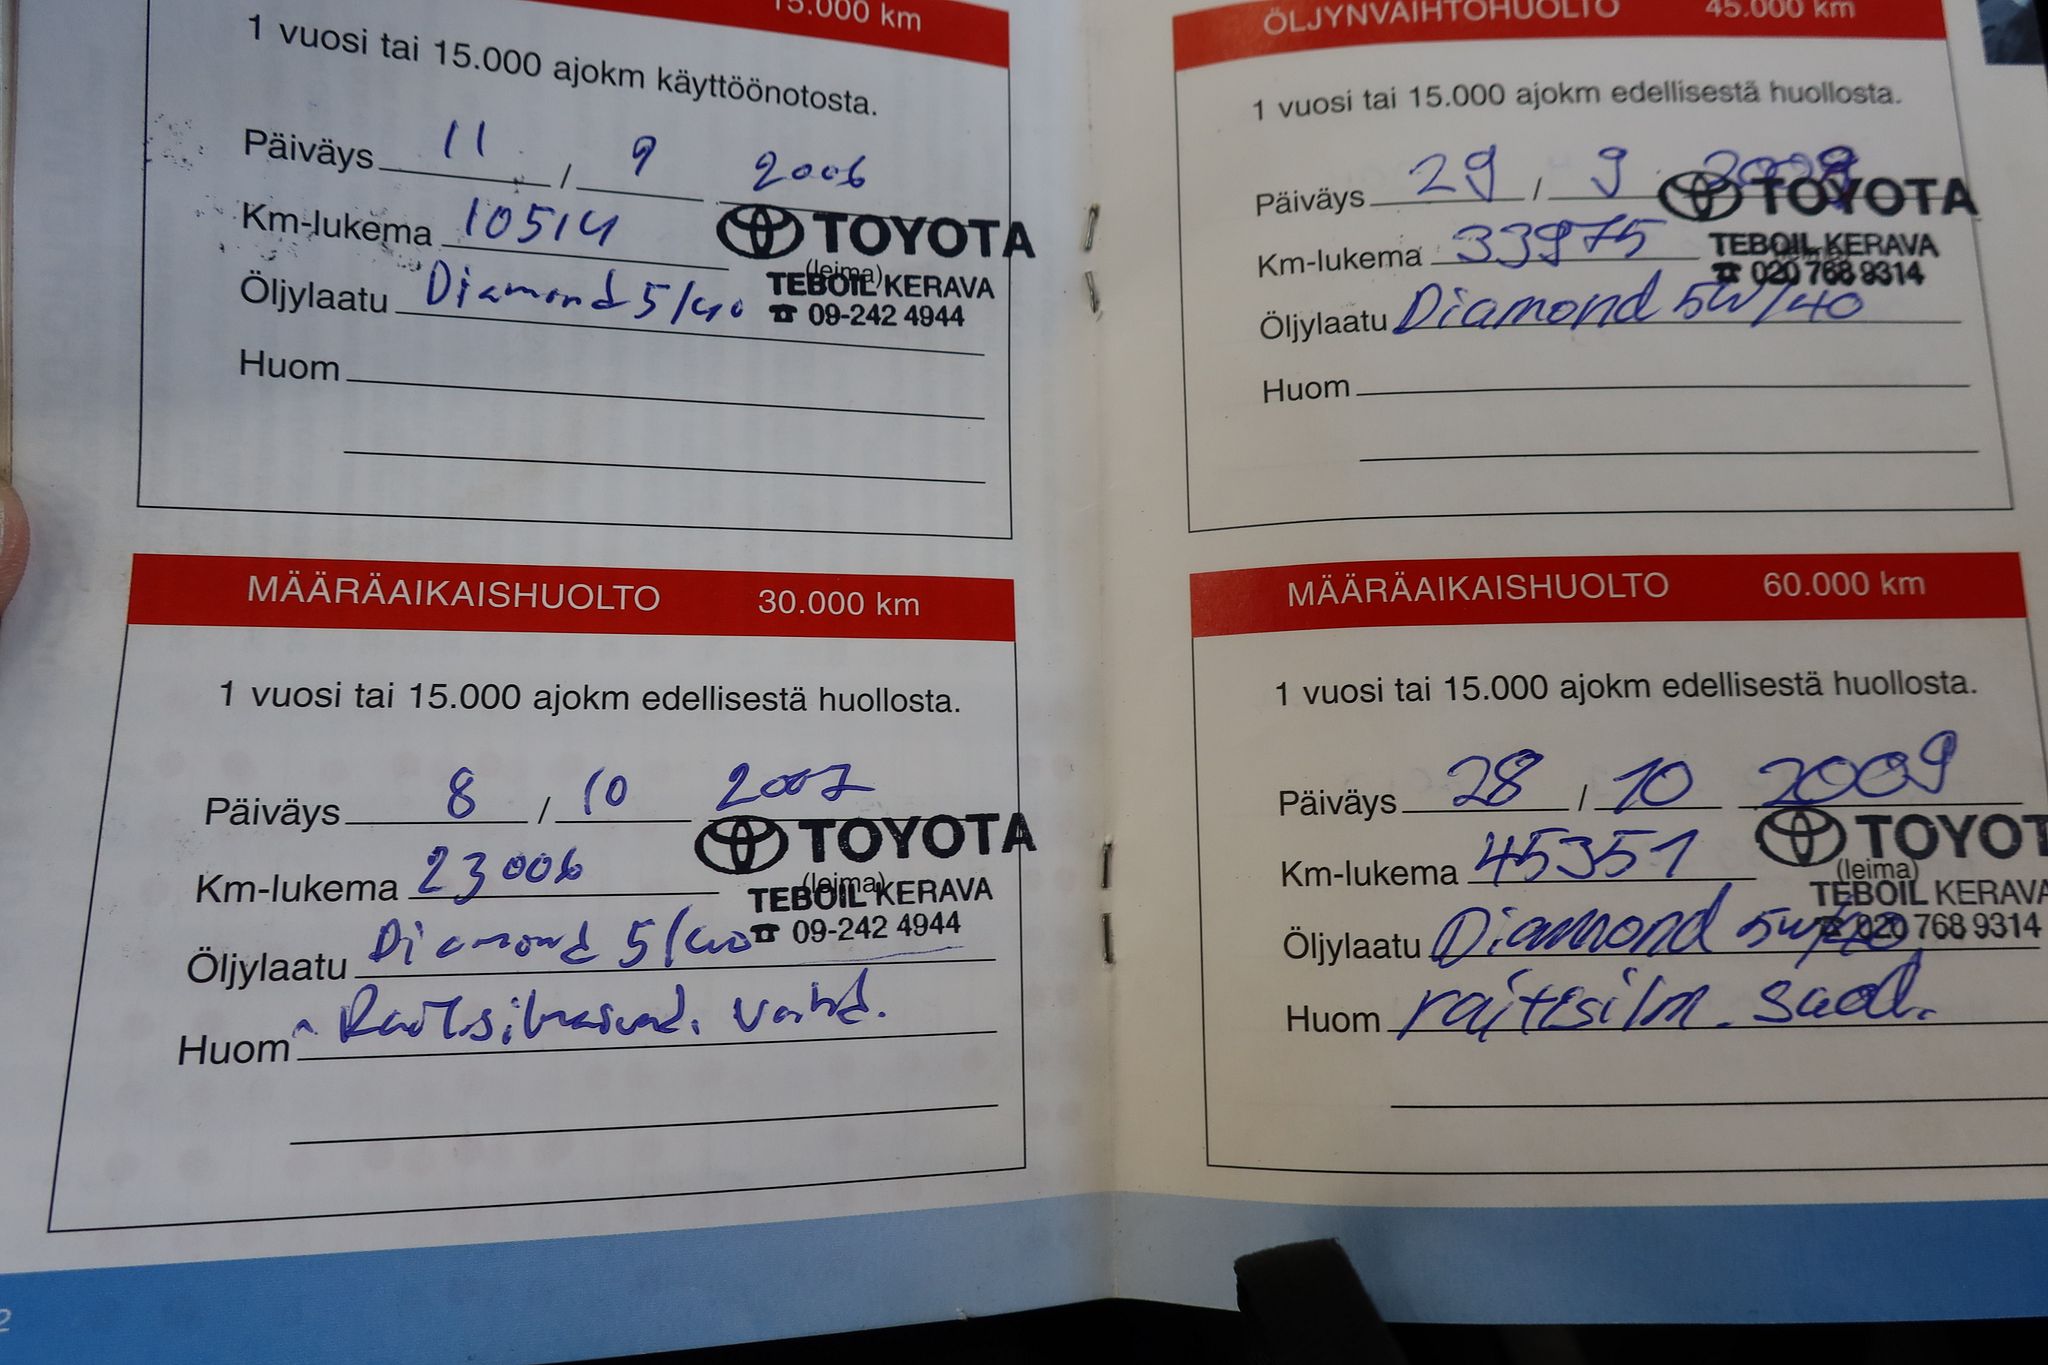 15.000 km
1 vuosi tai 15.000 ajokm käyttöönotosta.
Päiväys 11 / 9 2006
Km-lukema 10514
TOYOTA
(leima)
TEBOIL KERAVA
Öljylaatu Diamond 5/40
☎ 09-242 4944
Huom
MÄÄRÄAIKAISHUOLTO 30.000 km
1 vuosi tai 15.000 ajokm edellisestä huollosta.
Päiväys 8 / 10 2007
TOYOTA
Km-lukema 23006
(leima)
TEBOIL KERAVA
Öljylaatu Diamond 5/40
☎ 09-242 4944
Huom
2
ÖLJYNVAIHTOHUOLTO 45.000 km
1 vuosi tai 15.000 ajokm edellisestä huollosta.
Päiväys 29 / 9
TOYOTA
Km-lukema 33975
TEBOIL KERAVA
☎ 020 768 9314
Öljylaatu Diamond 5W/40
Huom
MÄÄRÄAIKAISHUOLTO 60.000 km
1 vuosi tai 15.000 ajokm edellisestä huollosta.
Päiväys 28 / 10 2009
TOYOT
Km-lukema 45351
(leima)
TEBOIL KERAVA
Öljylaatu Diamond 5W/40
☎ 020 768 9314
Huom raitisilm. suod.